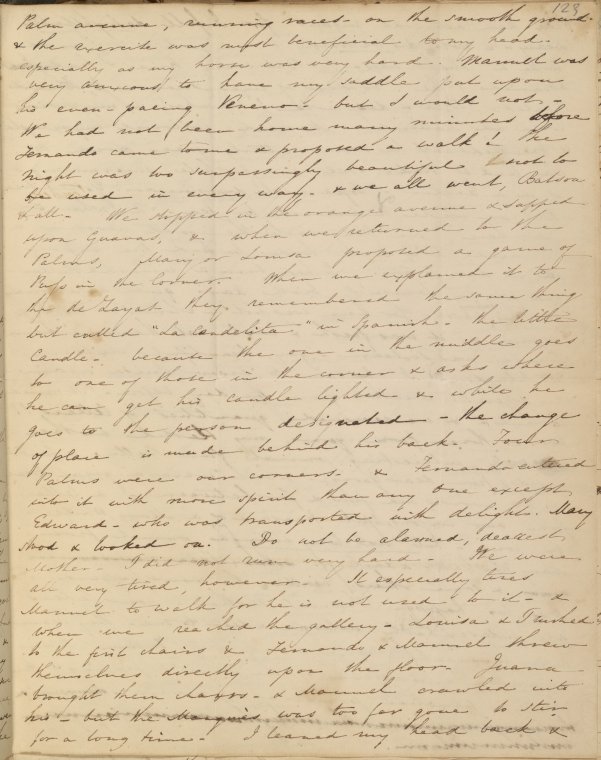 123
Palm avenue, running races - on the smooth ground -
& the exercise was most beneficial to my head -
especially as my horse was very hard. Manuel was
very anxious to have my saddle put upon
his even-pacing Veneno - but I would not -
We had not been home many minutes before
Fernando came to me & proposed a walk! The
night was too surpassingly beautiful not to
be used in every way - & we all went, Babson
& all - We stopped in the orange avenue & supped
upon Guavas, & when we returned to the
Palms, Mary or Louisa proposed a game of
Puss in the Corner. When we explained it to
the de Layas they remembered the same thing
but called "La Candelita" in Spanish - the little
Candle - because the one in the middle goes
to one of those in the corner & asks where
he can get his candle lighted & while he
goes to the person designated - the change
of place is made behind his back. Four
Palms were our corners - & Fernando entered
into it with more spirit than any one except
Edward - who was transported with delight. Mary
stood & looked on. Do not be alarmed, dearest
Mother - I did not run very hard - We were
all very tired, however. It especially tires
Manuel to walk for he is not used to it - &
when we reached the gallery - Louisa & I rushed
to the first chairs & Fernando & Manuel threw
themselves directly upon the floor. Juana
brought them chairs - & Manuel crawled into
his - but the Marquis was too far gone to stir
for a long time - I leaned my head back &